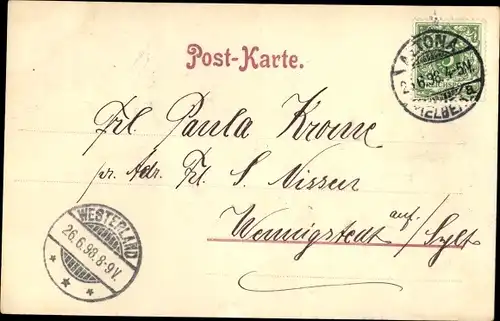 Post-Karte.
ALTONA
.6.98. 4-5N.
Frl. Paula Krone
pr. Adr. Frl. S. Nissen
Wenningstedt auf/Sylt
WESTERLAND
26.6.98.8-9V.